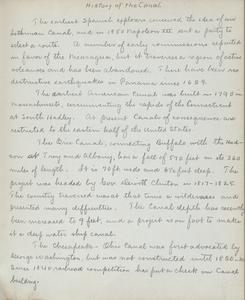 History of the Canal
The earliest Spanish explorers conceived the idea of an
Isthmian Canal, and in 1850 Napoleon III sent a party to
select a route. A number of early commissions reported
in favor of the Nicaragua, but it traverses a region of active
volcanoes and has been abandoned. There have been no
destructive earthquakes in Panama since 1684.
The earliest American Canal was built in 1790 in
Massachusetts, circumventing the rapids of the Connecticut
at South Hadley. At present Canals of consequence are
restricted to the eastern half of the United States.
The Erie Canal, connecting Buffalo with the Hud-
son at Troy and Albany, has a fall of 570 feet in its 360
miles of length. It is 70 ft. wide and 7 ft. deep. The
project was headed by Gov. Dewitt Clinton in 1817-1825.
The country traversed was at that time a wilderness and
presented many difficulties. The Canal depth has recently
been increased to 9 feet, and a project is on foot to make
it a deep water ship canal.
The Chesapeake-Ohio Canal was first advocated by
George Washington, but was not constructed until
Since 1840 railroad competition has put a check on Canal
building.